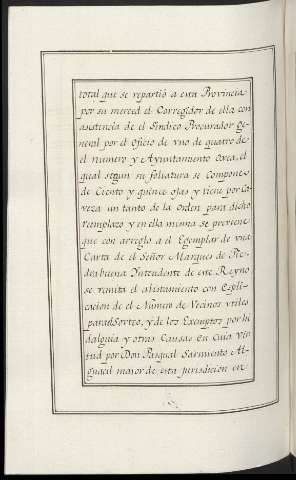 total que se repartió a esta Provincia
por su merced el Corregidor de ella con
asistencia de el Sindico Procurador Ge
neral por el Oficio de vno de quatro de
el numero y Ayuntamiento Corea, el
qual segun su foliatura se Compone
de Ciento y quince ojas y tiene por Ca
veza un tanto de la orden para dicho
reemplazo y en ella misma se previene
que con arreglo a el Egemplar de vna
Carta de el Señor Marques de Pie
drabuena Yntendente de este Reyno
se remita el alistamiento con Espli
cacion de el Número de Vecinos vtiles
para el Sorteo, y de los Exemptos por hi
dalguia y otras Causas en Cuia Vir
tud por Don Pasqual Sarmiento Al
guacil maior de esta jurisdicion en